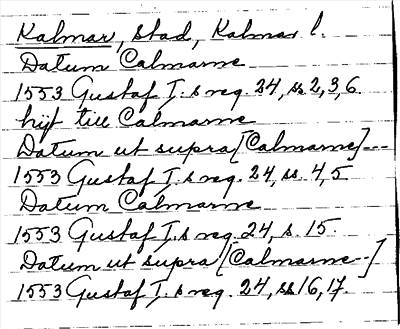 Kalmar, stad, Kalmar l.
Datum Calmarne
1553 Gustaf I.s reg. 24, ss. 2, 3, 6.
hijt till Calmarne
Datum ut supra [Calmarne] ---
1553 Gustaf I.s reg. 24, ss. 4, 5
Datum Calmarne
1553 Gustaf I.s reg. 24, s. 15.
Datum ut supra [Calmarne--]
1553 Gustaf I.s reg. 24, ss 16, 17.